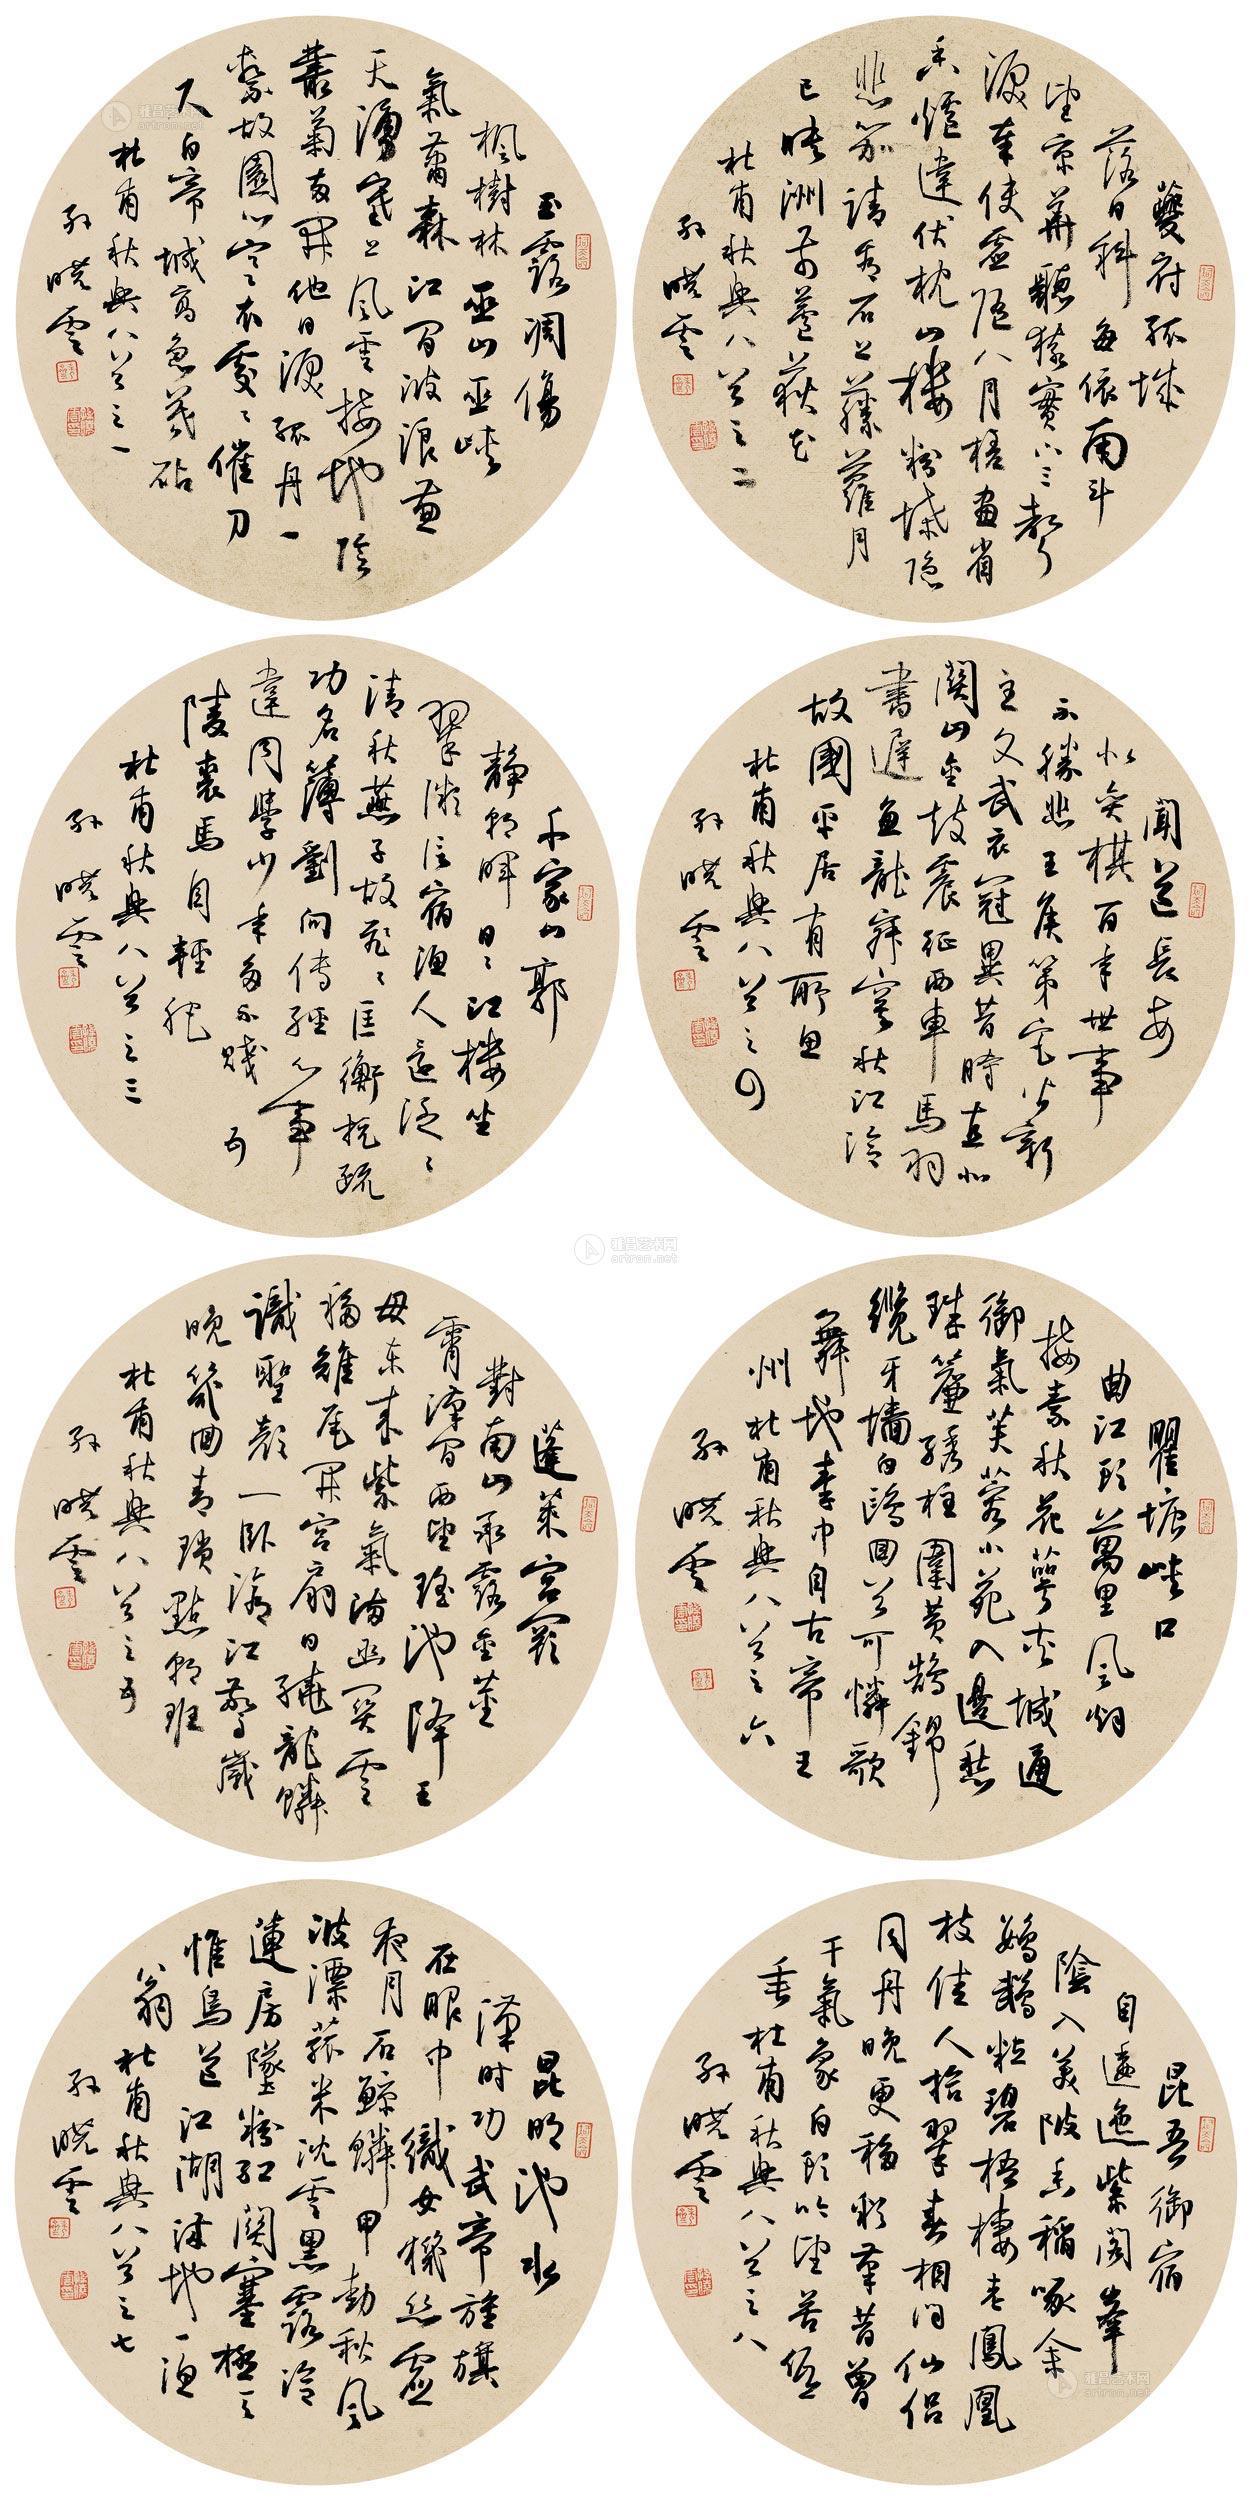 玉露凋傷
楓樹林巫山巫峽
氣蕭森江間波浪兼
天湧塞上風雲接地陰
叢菊兩開他日淚孤舟一
繫故園心寒衣處〻催刀
尺白帝城高急暮砧
杜甫秋興八首之一
孫曉雲
夔府孤城
落日斜每依南斗
望京華聽猿實下三聲
淚奉使虛隨八月槎畫省
香爐違伏枕山樓粉堞隱
悲笳請看石上藤蘿月
已映洲前蘆荻花
杜甫秋興八首之二
孫曉雲
千家山郭
靜朝暉日〻江樓坐
翠微信宿漁人還泛〻
清秋燕子故飛〻匡衡抗疏
功名薄劉向傳經心事
違同學少年多不賤五
陵裘馬自輕肥
杜甫秋興八首之三
孫曉雲
聞道長安
似奕棋百年世事
不勝悲王侯第宅皆新
主文武衣冠異昔時直北
關山金鼓震征西車馬羽
書遲魚龍寂寞秋江冷
故國平居有所思
杜甫秋興八首之四
孫曉雲
蓬萊宮闕
對南山承露金莖
霄漢間西望瑤池降王
母東來紫氣滿函關雲
移雉尾開宮扇日繞龍鱗
識聖顏一臥滄江驚歲
晚幾回青瑣點朝班
杜甫秋興八首之五
孫曉雲
瞿塘峽口
曲江頭萬里風煙
接素秋花萼夾城通
御氣芙蓉小苑入邊愁
珠簾繡柱圍黃鵠錦
纜牙墻白鷗回首可憐歌
舞地秦中自古帝王
州 杜甫秋興八首之六
孫曉雲
昆明池水
漢時功武帝旌旗
在眼中織女機絲虛
夜月石鯨鱗甲動秋風
波漂菰米沈雲黑露冷
蓮房墜粉紅關塞極天
惟鳥道江湖滿地一漁
翁 杜甫秋興八首之七
孫曉雲
昆吾御宿
自逶迤紫閣峰
陰入美陂香稻啄余
鸚鵡粒碧梧棲老鳳凰
枝佳人拾翠春相問仙侶
同舟晚更移彩筆昔曾
干氣象白頭吟望苦低
垂 杜甫秋興八首之八
孫曉雲
雅昌艺术网
artron.net